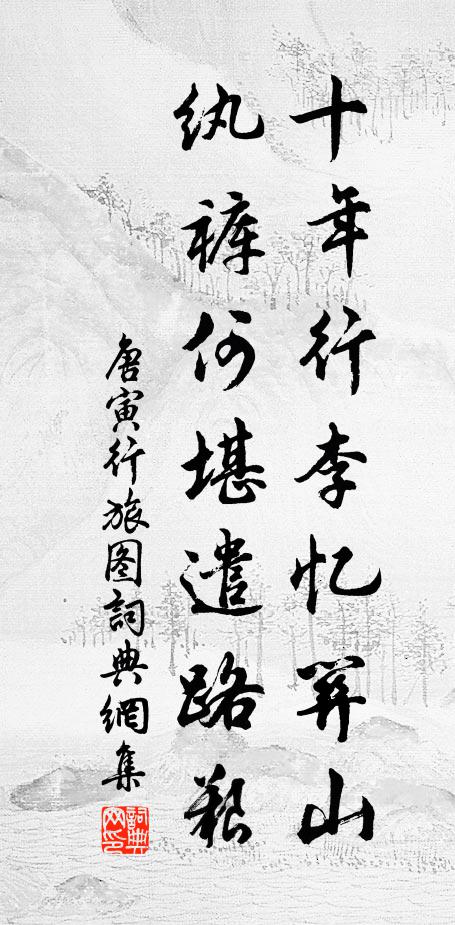 十年行李忆关山
纨裤何堪遣路艱
唐寅行旅图詞典網集
詞典网印